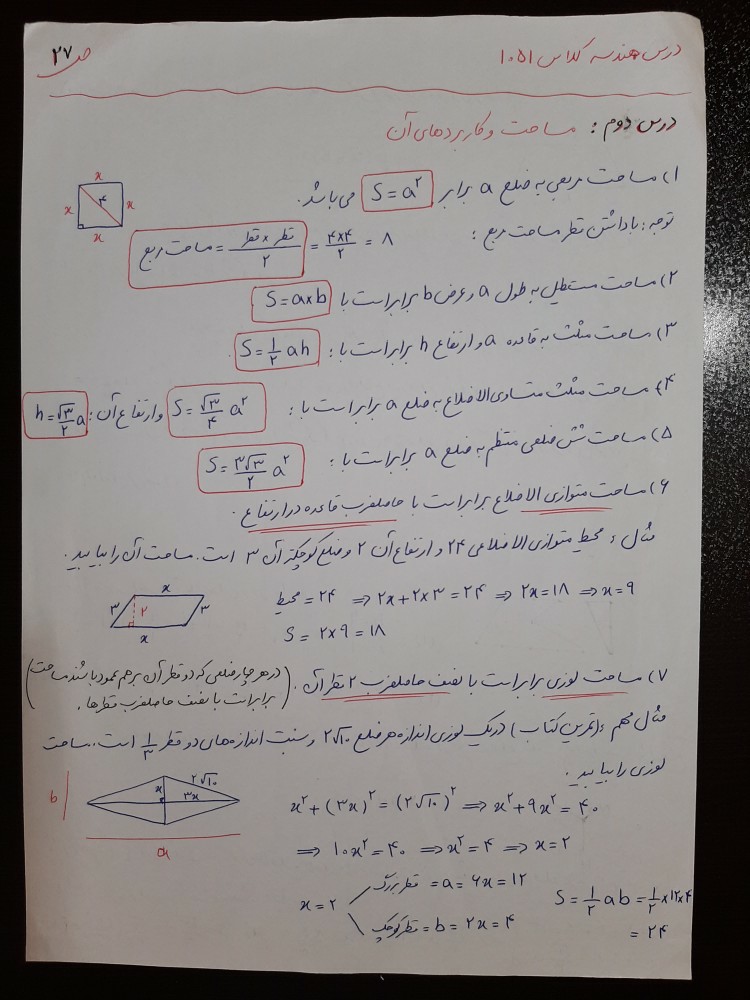 درس هندسه کلاس ۱۰۵۱
ص ۲۷
درس دوم: مساحت و کاربردهای آن
۱) مساحت مربعی به ضلع a برابر S = a² می‌باشد.
x
x ۴ x
x
توجه: با داشتن قطر مساحت مربع:
مساحت مربع = قطر × قطر / ۲ = ۴×۴ / ۲ = ۸
۲) مساحت مستطیل به طول a و عرض b برابر است با S = a×b
۳) مساحت مثلث به قاعده a و ارتفاع h برابر است با: S = ۱/۲ ah.
۴) مساحت مثلث متساوی الاضلاع به ضلع a برابر است با: S = √۳/۴ a² و ارتفاع آن: h = √۳/۲ a
۵) مساحت شش ضلعی منتظم به ضلع a برابر است با: S = ۳√۳/۲ a²
۶) مساحت متوازی الاضلاع برابر است با حاصلضرب قاعده در ارتفاع.
مثال: محیط متوازی الاضلاعی ۲۴ و ارتفاع آن ۲ و ضلع کوچکتر آن ۳ است. مساحت آن را بیابید.
x
۳ ۲ ۳
x
محیط = ۲۴ ⇒ ۲x + ۲×۳ = ۲۴ ⇒ ۲x = ۱۸ ⇒ x = ۹
S = ۲×۹ = ۱۸
۷) مساحت لوزی برابر است با نصف حاصلضرب ۲ قطر آن.
(در هر چهارضلعی که دو قطر آن بر هم عمود باشند مساحت
برابر است با نصف حاصلضرب قطرها.)
مثال مهم: (تمرین کتاب) در یک لوزی اندازه هر ضلع ۲√۱۰ و نسبت اندازه‌های دو قطر ۱/۳ است. مساحت
لوزی را بیابید.
۲√۱۰
b x ۳x
a
x² + (۳x)² = (۲√۱۰)² ⇒ x² + ۹x² = ۴۰
⇒ ۱۰x² = ۴۰ ⇒ x² = ۴ ⇒ x = ۲
x = ۲
قطر بزرگ = a = ۶x = ۱۲
قطر کوچک = b = ۲x = ۴
S = ۱/۲ ab = ۱/۲ × ۱۲×۴
= ۲۴